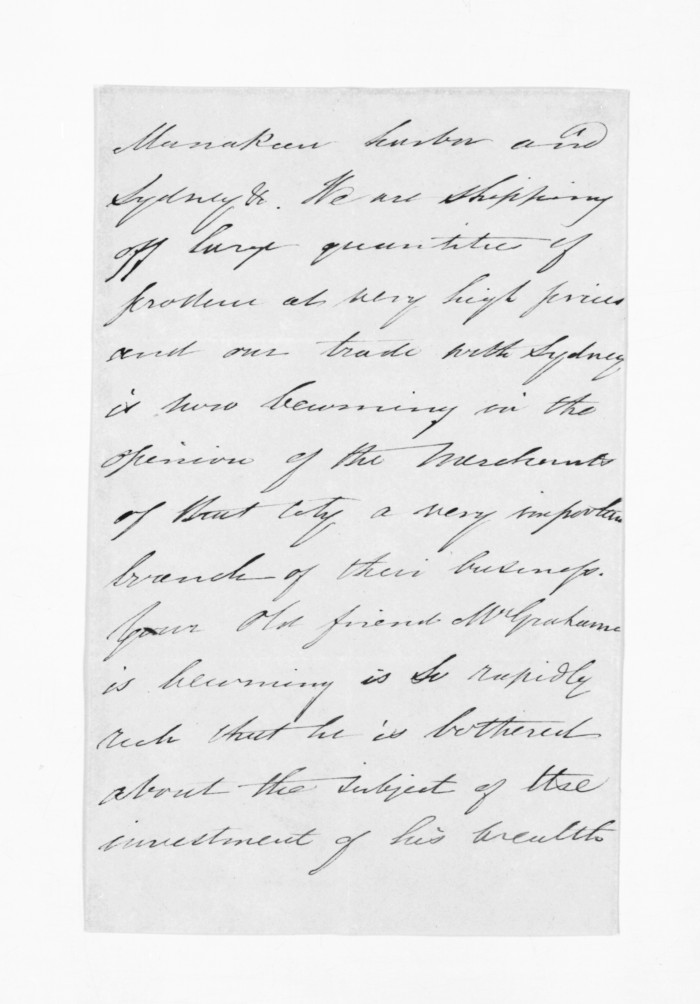 Manakau harbor and
Sydney &c. We are shipping
off large quantities of
produce at very high prices
and our trade with Sydney
is now becoming in the
opinion of the Merchants
of that City a very importan
branch of their business.
Your Old friend Mr Grahame
is becoming is so rapidly
rich that he is bothered
about the subject of the
investment of his wealth